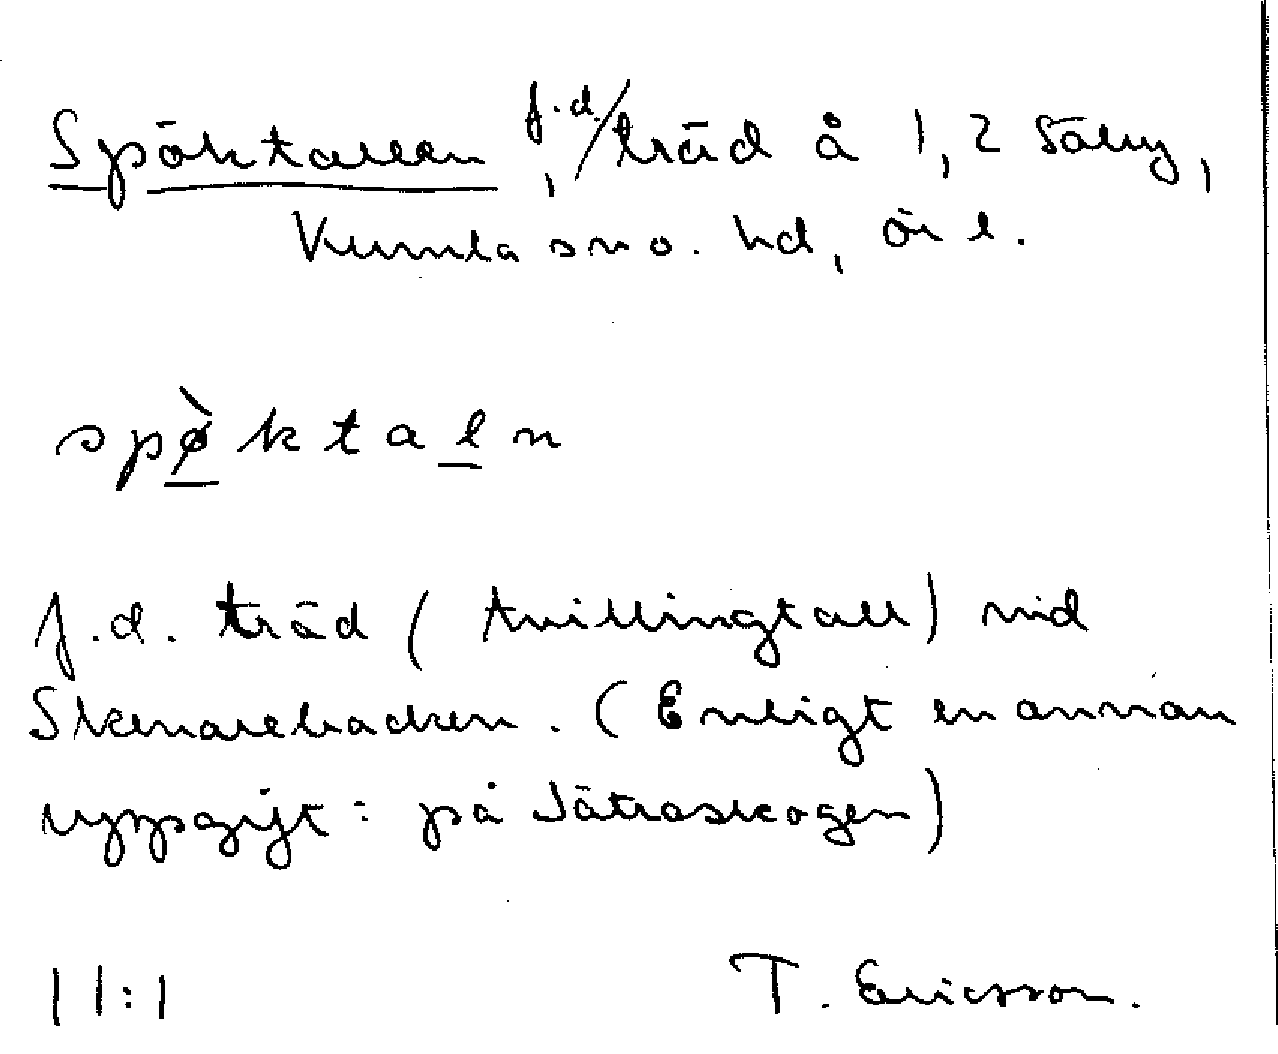 Spöktallen, f.d. träd å 1,2 Sälvy,
Kumla sn o. hd, ör l.
spø̀ktaln
f.d. träd (tvillingtall) vid
Stenarebacken. (Enligt en annan
uppgift: på Sätraskogen)
11:1 T. Ericsson.